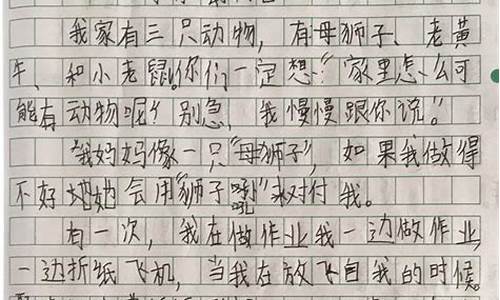 我家有三只动物，有母狮子、老黄
牛、和小老鼠。你们一定想：“家里怎么可
能有动物呢？别急，我慢慢跟你说。”
我妈妈像一只“母狮子”，如果我做得
不好，她会用“狮子吼”来对付我。
有一次，我在做作业我一边做作业，
一边折纸飞机，当我在放飞自我的时候。